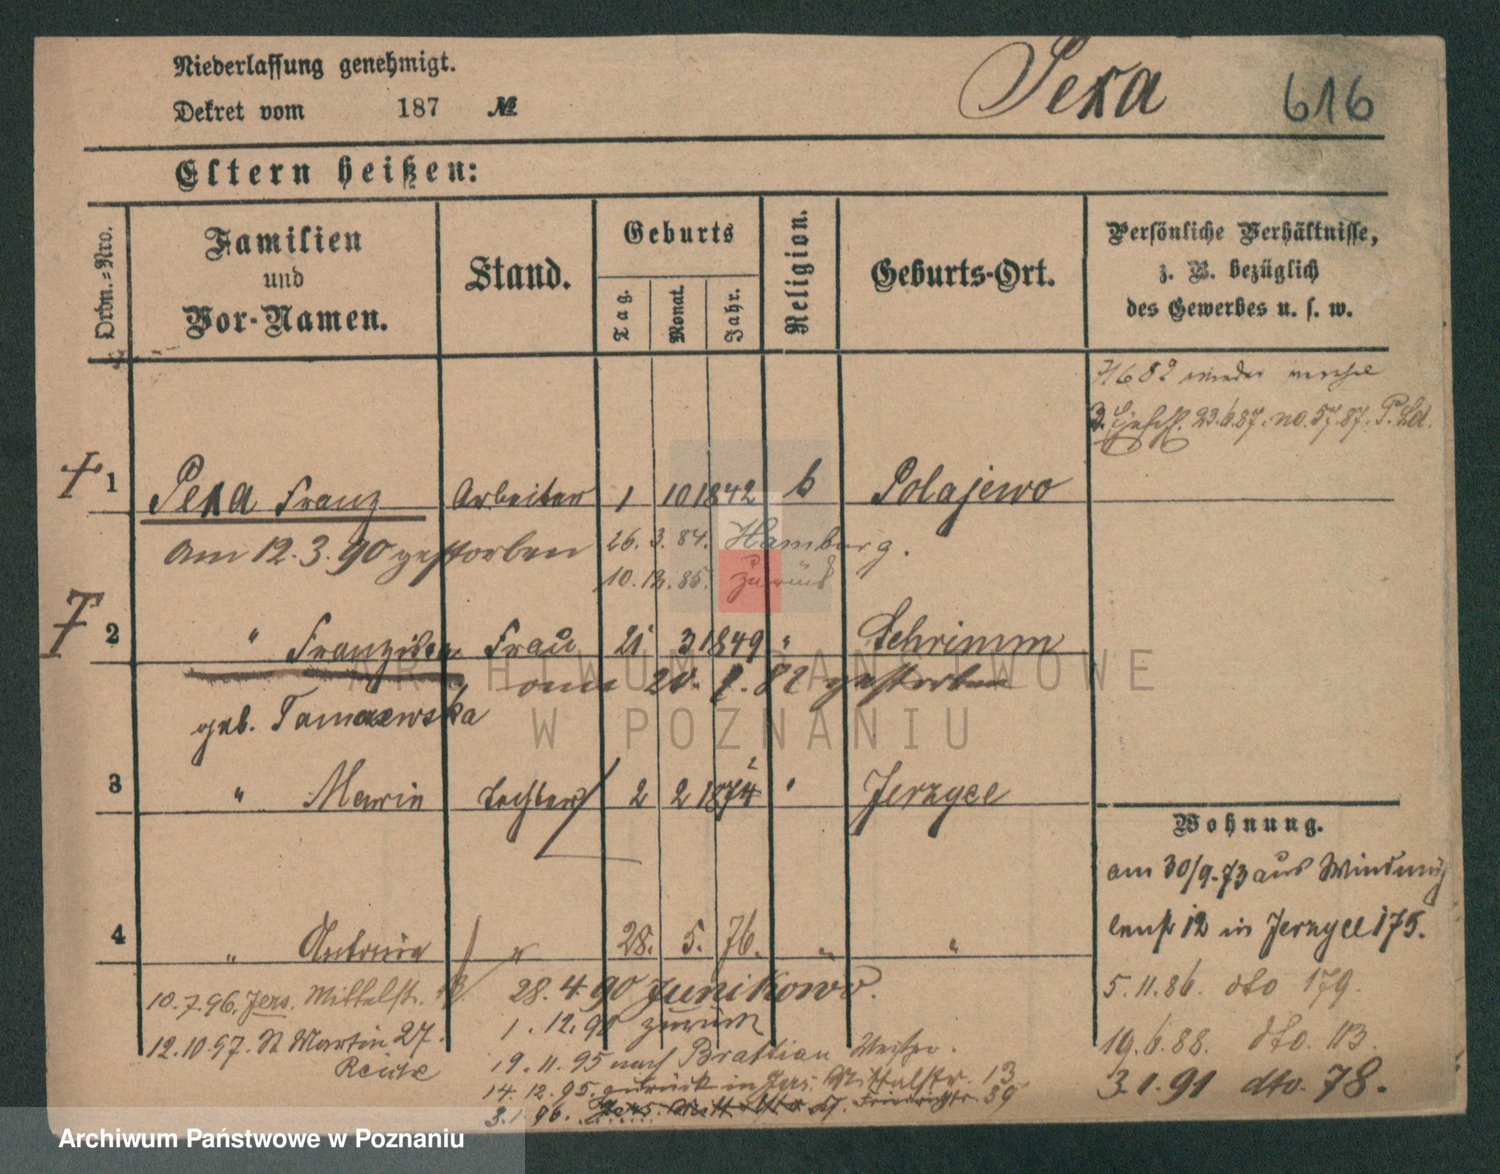 Niederlassung genehmigt.
Dekret vom 187 №
Pexa 616
Eltern heißen:
Ordn.=Nro.
Familien
und
Vor-Namen.
Stand.
Geburts
Tag.
Monat.
Jahr.
Religion.
Geburts-Ort.
Persönliche Verhältnisse,
z. B. bezüglich
des Gewerbes u. s. w.
23.6.87. no. 57.87.
1 Pexa Franz Arbeiter 1 10 1842 k Polajewo
am 12.3.90 gestorben
26.3.84. Hamburg.
10.12.85. zurück
2 " Franziska Frau 21 3 1849 " Schrimm
am 20. 82 gestorben
geb. Tomaszewska
3 " Marie Tochter 2 2 1874 " Jerzyce
Wohnung.
am 30/9.73 aus
12 in Jerzyce 175.
4 " Antonie " 28. 5. 76. " "
5.11.86. dto 179.
19.6.88. dto. 113.
3.1.91 dto. 78.
10.7.96. Jers. Mittelstr. 13.
12.10.97. St Martin 27.
28.4.90 Junikowo.
1.12.90 zurück
19.11.95 nach Brattian
14.12.95. zurück in Jers. Mittelstr. 13
3.1.96. Friedrichstr. 39
ARCHIWUM PAŃSTWOWE
W POZNANIU
Archiwum Państwowe w Poznaniu